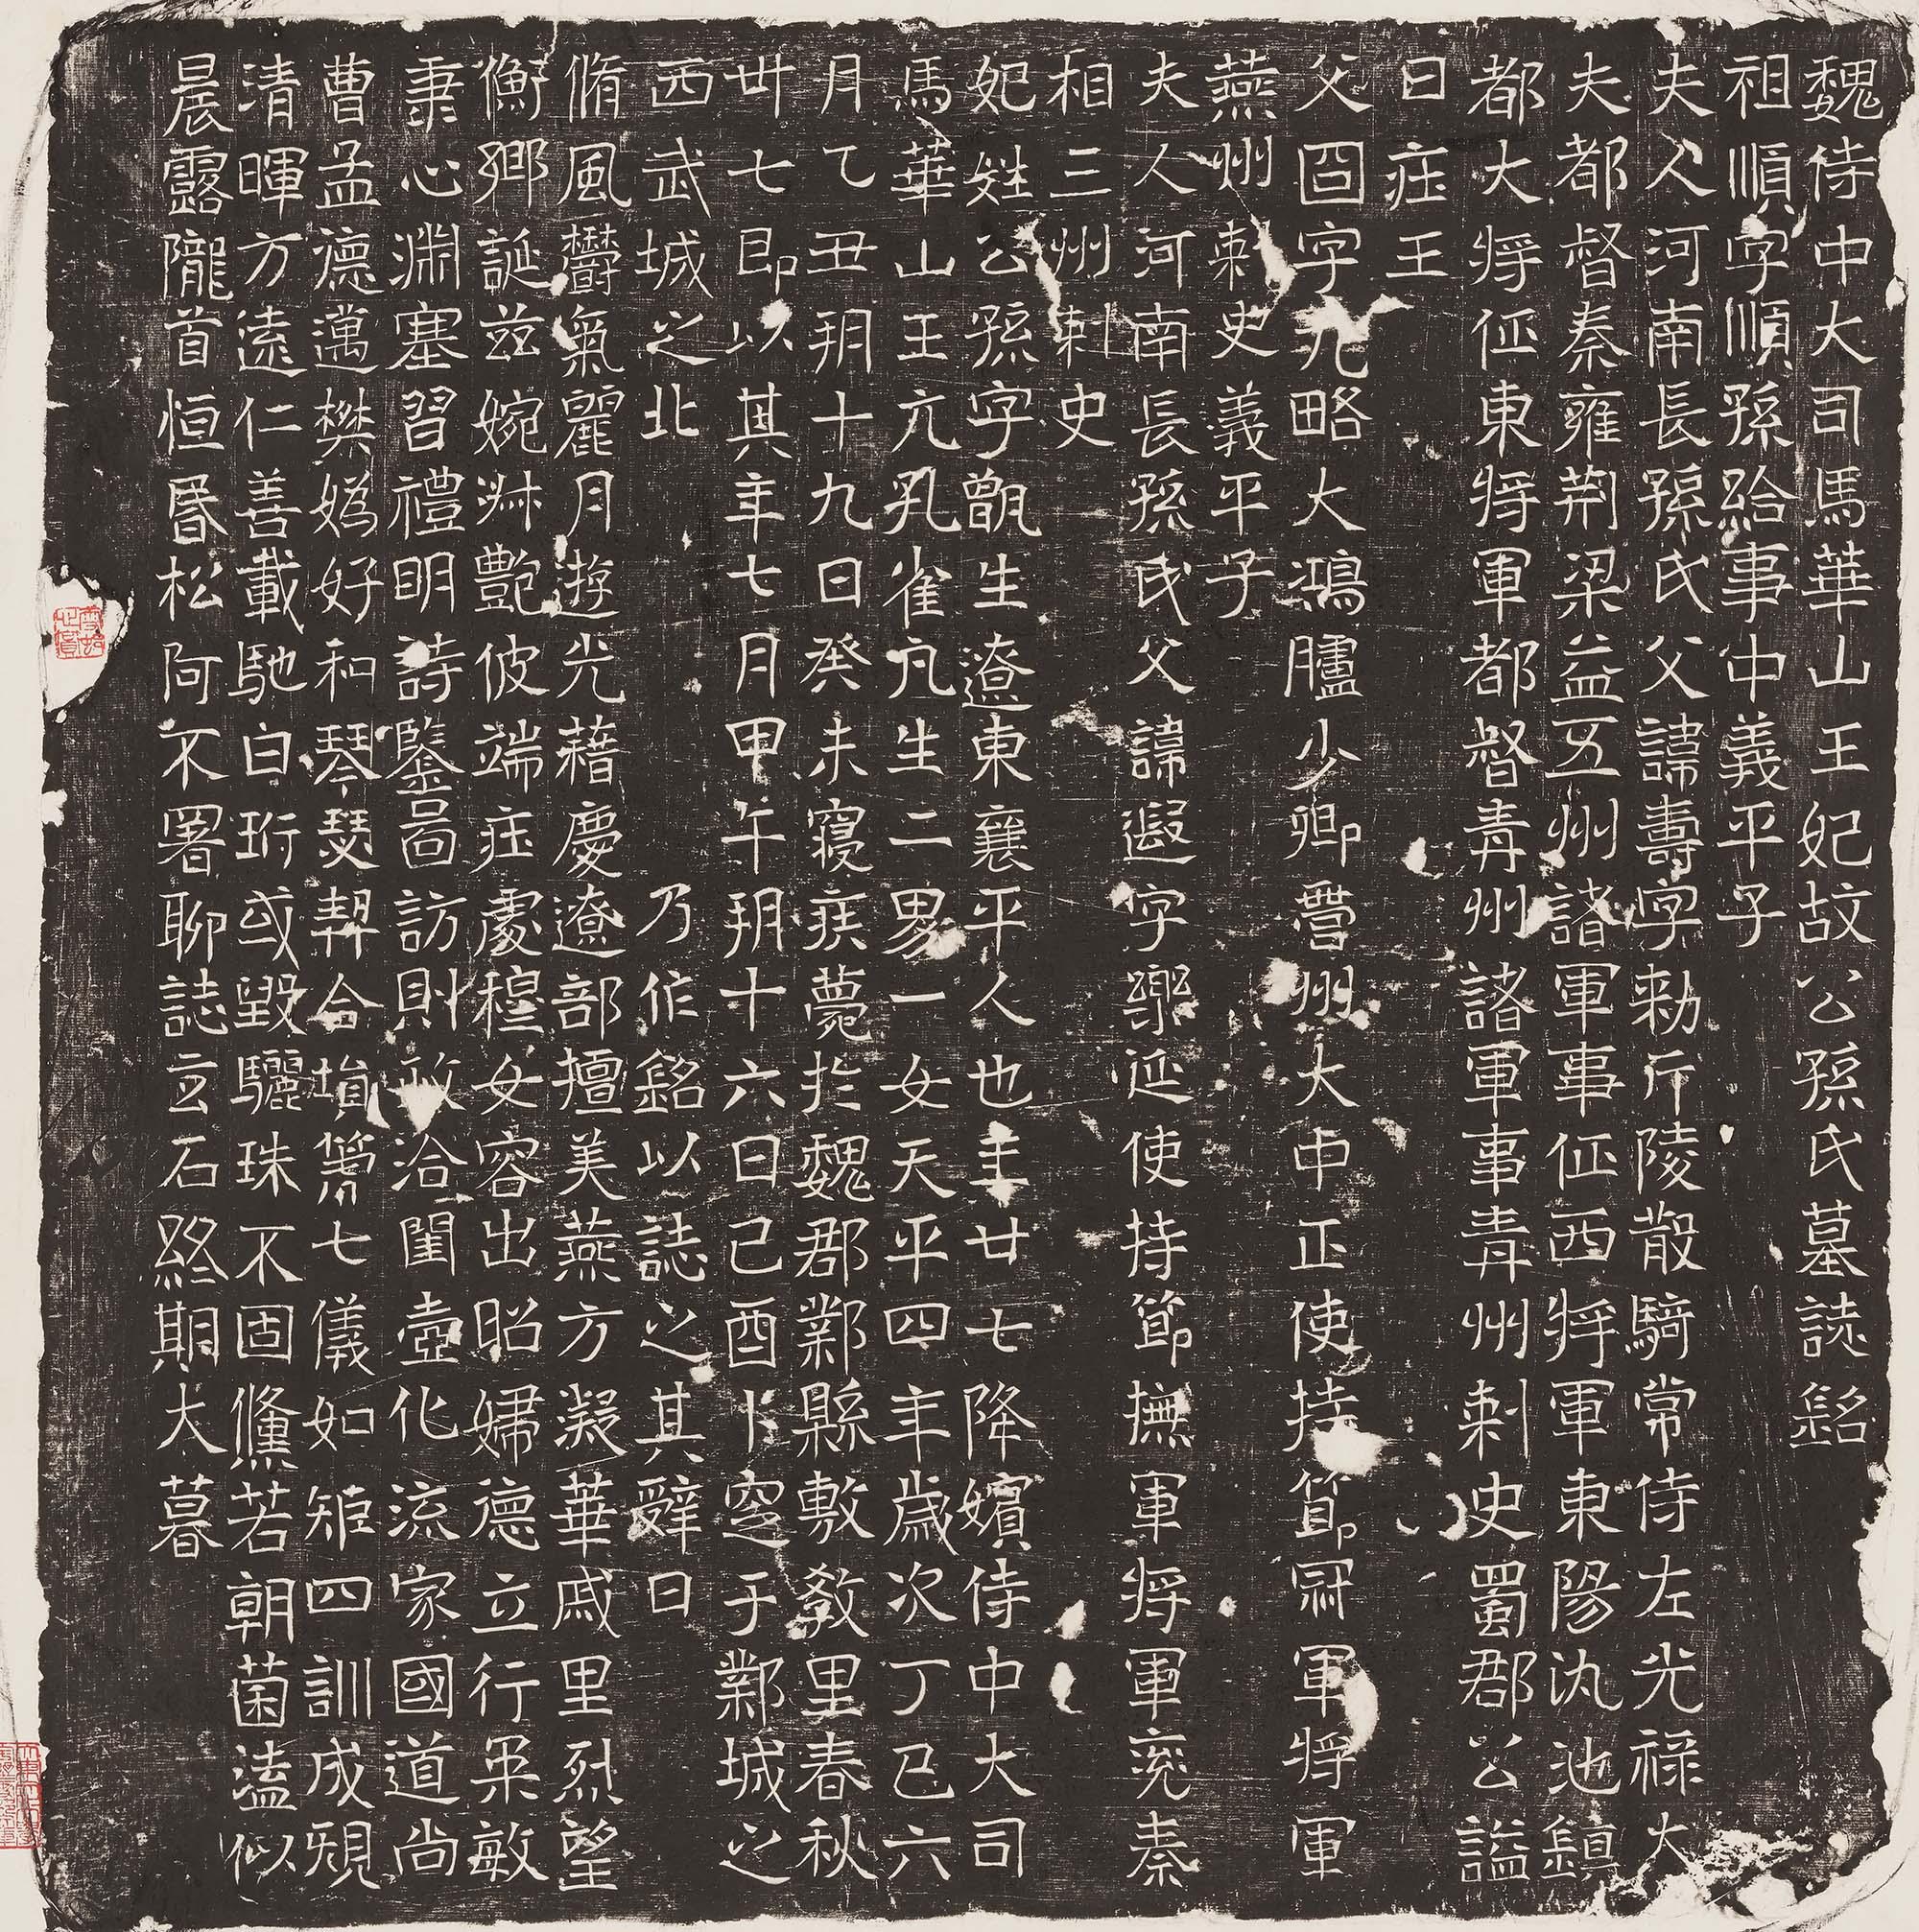 魏侍中大司馬華山王妃故公孫氏墓誌銘
祖順字順孫給事中義平子
夫人河南長孫氏父諱壽字敕斤陵散騎常侍左光祿大
夫都督秦雍荊梁益五州諸軍事征西將軍東陽仇池鎮
都大將征東將軍都督青州諸軍事青州刺史蜀郡公謚
曰莊王
父囧字九略大鴻臚少卿營州大中正使持節冠軍將軍
燕州刺史義平子
夫人河南長孫氏父諱遐字樂延使持節撫軍將軍兗秦
相三州刺史
妃姓公孫字甑生遼東襄平人也年廿七降嬪侍中大司
馬華山王亢孔雀凡生二男一女天平四年歲次丁巳六
月乙丑朔十九日癸未寢疾薨於魏郡鄴縣敷教里春秋
卅七即以其年七月甲午朔十六日己酉卜窆于鄴城之
西武城之北 乃作銘以誌之其辭曰
脩風鬱氣麗月遊光藉慶遼部擅美燕方凝華戚里烈望
衡鄉誕茲婉淋艷彼端莊處穆女容出昭婦德立行渠敏
秉心淵塞習禮明詩鑒啚訪則敬洽閨壼化流家國道尚
曹孟德邁樊嬀好和琴瑟契合塤篪七儀如矩四訓成規
清暉方遠仁善載馳白珩或毀驪珠不固儵若朝菌溘似
晨露隴首恒昏松阿不署聊誌玄石終期大暮